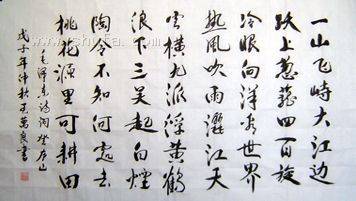 一山飞峙大江边
跃上葱茏四百旋
冷眼向洋看世界
热风吹雨灑江天
云横九派浮黄鹤
浪下三吴起白煙
陶令不知何处去
桃花源里可耕田
毛泽东诗词登庐山
戊子年仲秋万良书